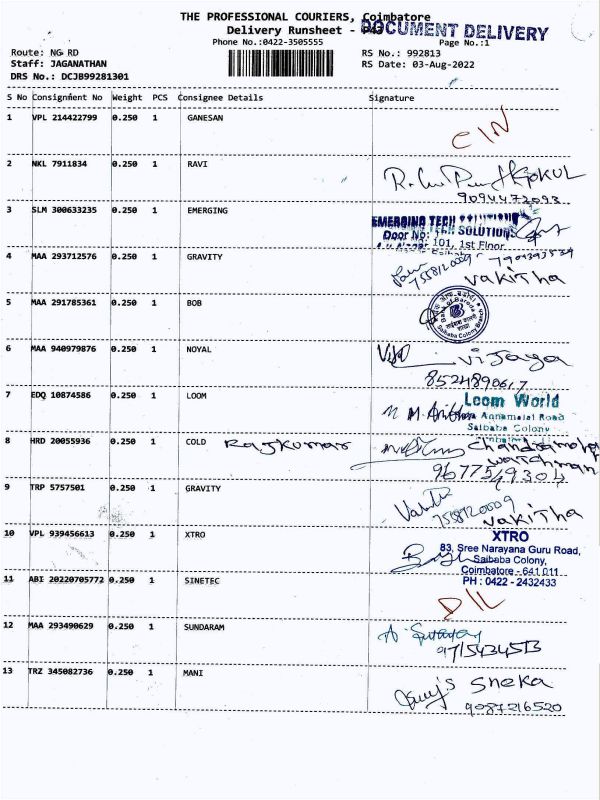 THE PROFESSIONAL COURIERS, Coimbatore
Delivery Runsheet -
DOCUMENT DELIVERY
Phone No.:0422-3505555
Page No.:1
Route: NG RD
RS No.: 992813
Staff: JAGANATHAN
RS Date: 03-Aug-2022
DRS No.: DCJB99281301
S No Consignment No Weight PCS Consignee Details Signature
1 VPL 214422799 0.250 1 GANESAN
2 NKL 7911834 0.250 1 RAVI GOKUL
9094472093
3 SLM 300633235 0.250 1 EMERGING
EMERGING TECH SOLUTIONS
Door No: TECH SOLUTIONS
101, 1st Floor
4 MAA 293712576 0.250 1 GRAVITY
7558120009
vakitha
5 MAA 291785361 0.250 1 BOB
Bank of Baroda
Saibaba Colony
6 MAA 940979876 0.250 1 NOYAL vijaya
8524890617
7 EDQ 10874586 0.250 1 LOOM
Loom World
Annamalai Road
Saibaba Colony
8 HRD 20055936 0.250 1 COLD Rajkumar
watchman
9677549304
9 TRP 5757501 0.250 1 GRAVITY
7558120009
vakitha
10 VPL 939456613 0.250 1 XTRO
XTRO
83, Sree Narayana Guru Road,
Saibaba Colony,
Coimbatore - 641 011
PH : 0422 - 2432433
11 ABI 20220705772 0.250 1 SINETEC
D/L
12 MAA 293490629 0.250 1 SUNDARAM
9715434513
13 TRZ 345082736 0.250 1 MANI
Sneka
9087216520